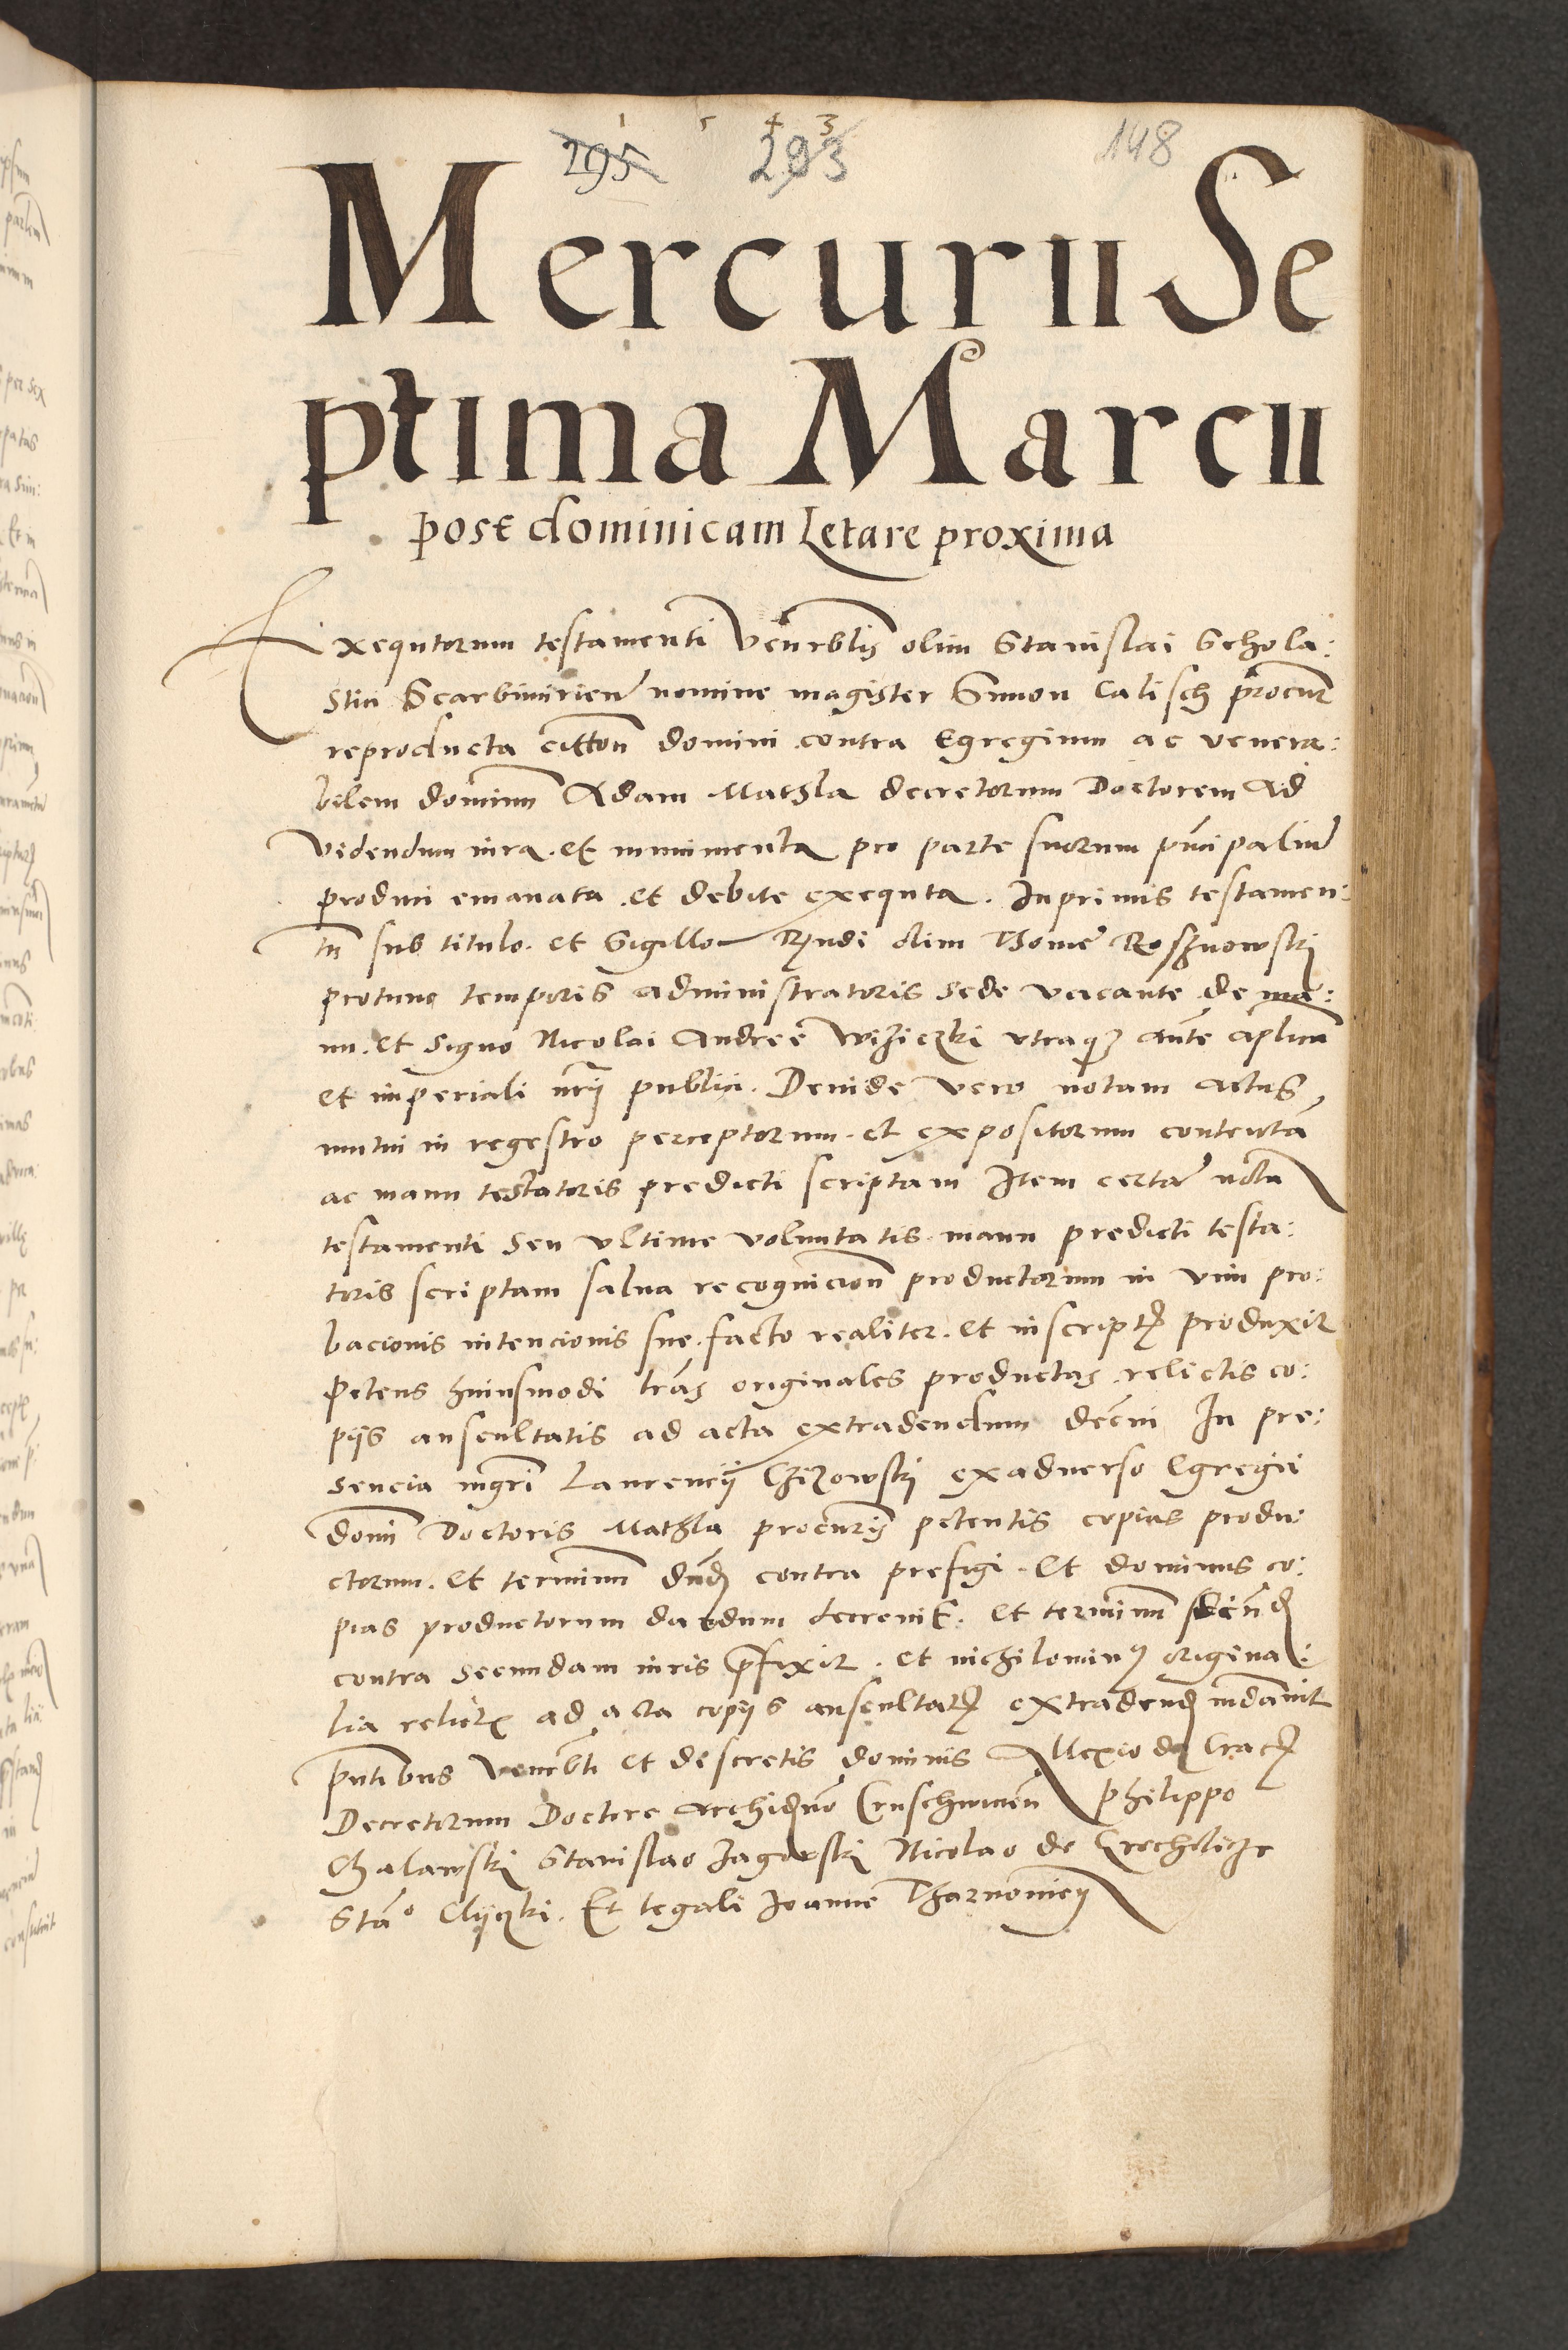 1 5 4 3
295 203 148
Mercurii Se
ptima Marcii
post dominicam Letare proxima
Exequtorum testamenti Venerblis olim Stanislai Schola:
stici Scarbimirien nomine magister Simon Calisch procur
reproducta citton domini contra Egregium ac venera:
bilem dominum Adam Mathla decretorum Doctorem Ad
videndum iura. et munimenta pro parte suorum principalium
produci emanata. et debite exequta. Inprimis testamen:
tum sub titulo. et Sigillo Rndi olim Thome Rosznowski
protunc temporis administratoris Sede vacante de ma:
nu. et Signo Nicolai Andree utraque aucte aplica
et imperiali nrii publici. Deinde vero notam actus
mutui in regestro perceptorum. et expositorum contenta
ac manu testatoris predicti scriptam Item certam nota
testamenti Seu ultime voluntatis. manu predicti testa:
toris scriptam salva recognicion productorum in vim pro:
bacionis intencionis sue. facto realiter. et in scriptis produxit
Petens huiusmodi lras originales productas relictis co:
piis auscultatis ad acta extradendum decerni In pre:
sencia mgri Laurencii Chizowski exadverso Egregii
domini Doctoris Mathla procuris petentis copias produ:
ctorum. et terminum dnd contra prefigi. Et dominus co:
pias productorum dandum decrevit. et terminum
contra secundam iuris prefixit. et nichilominus origina:
lia relictis ad acta copiis auscultatis extradend mdavit
pntibus Venerbli et discretis dominis Allexio de Crac
Decretorum Doctore archidno Cruschwicien Philippo
Chalawski Stanislao Jagowski Nicolao de
Stano Clyczki. Et legali Joanne Tharnowicz